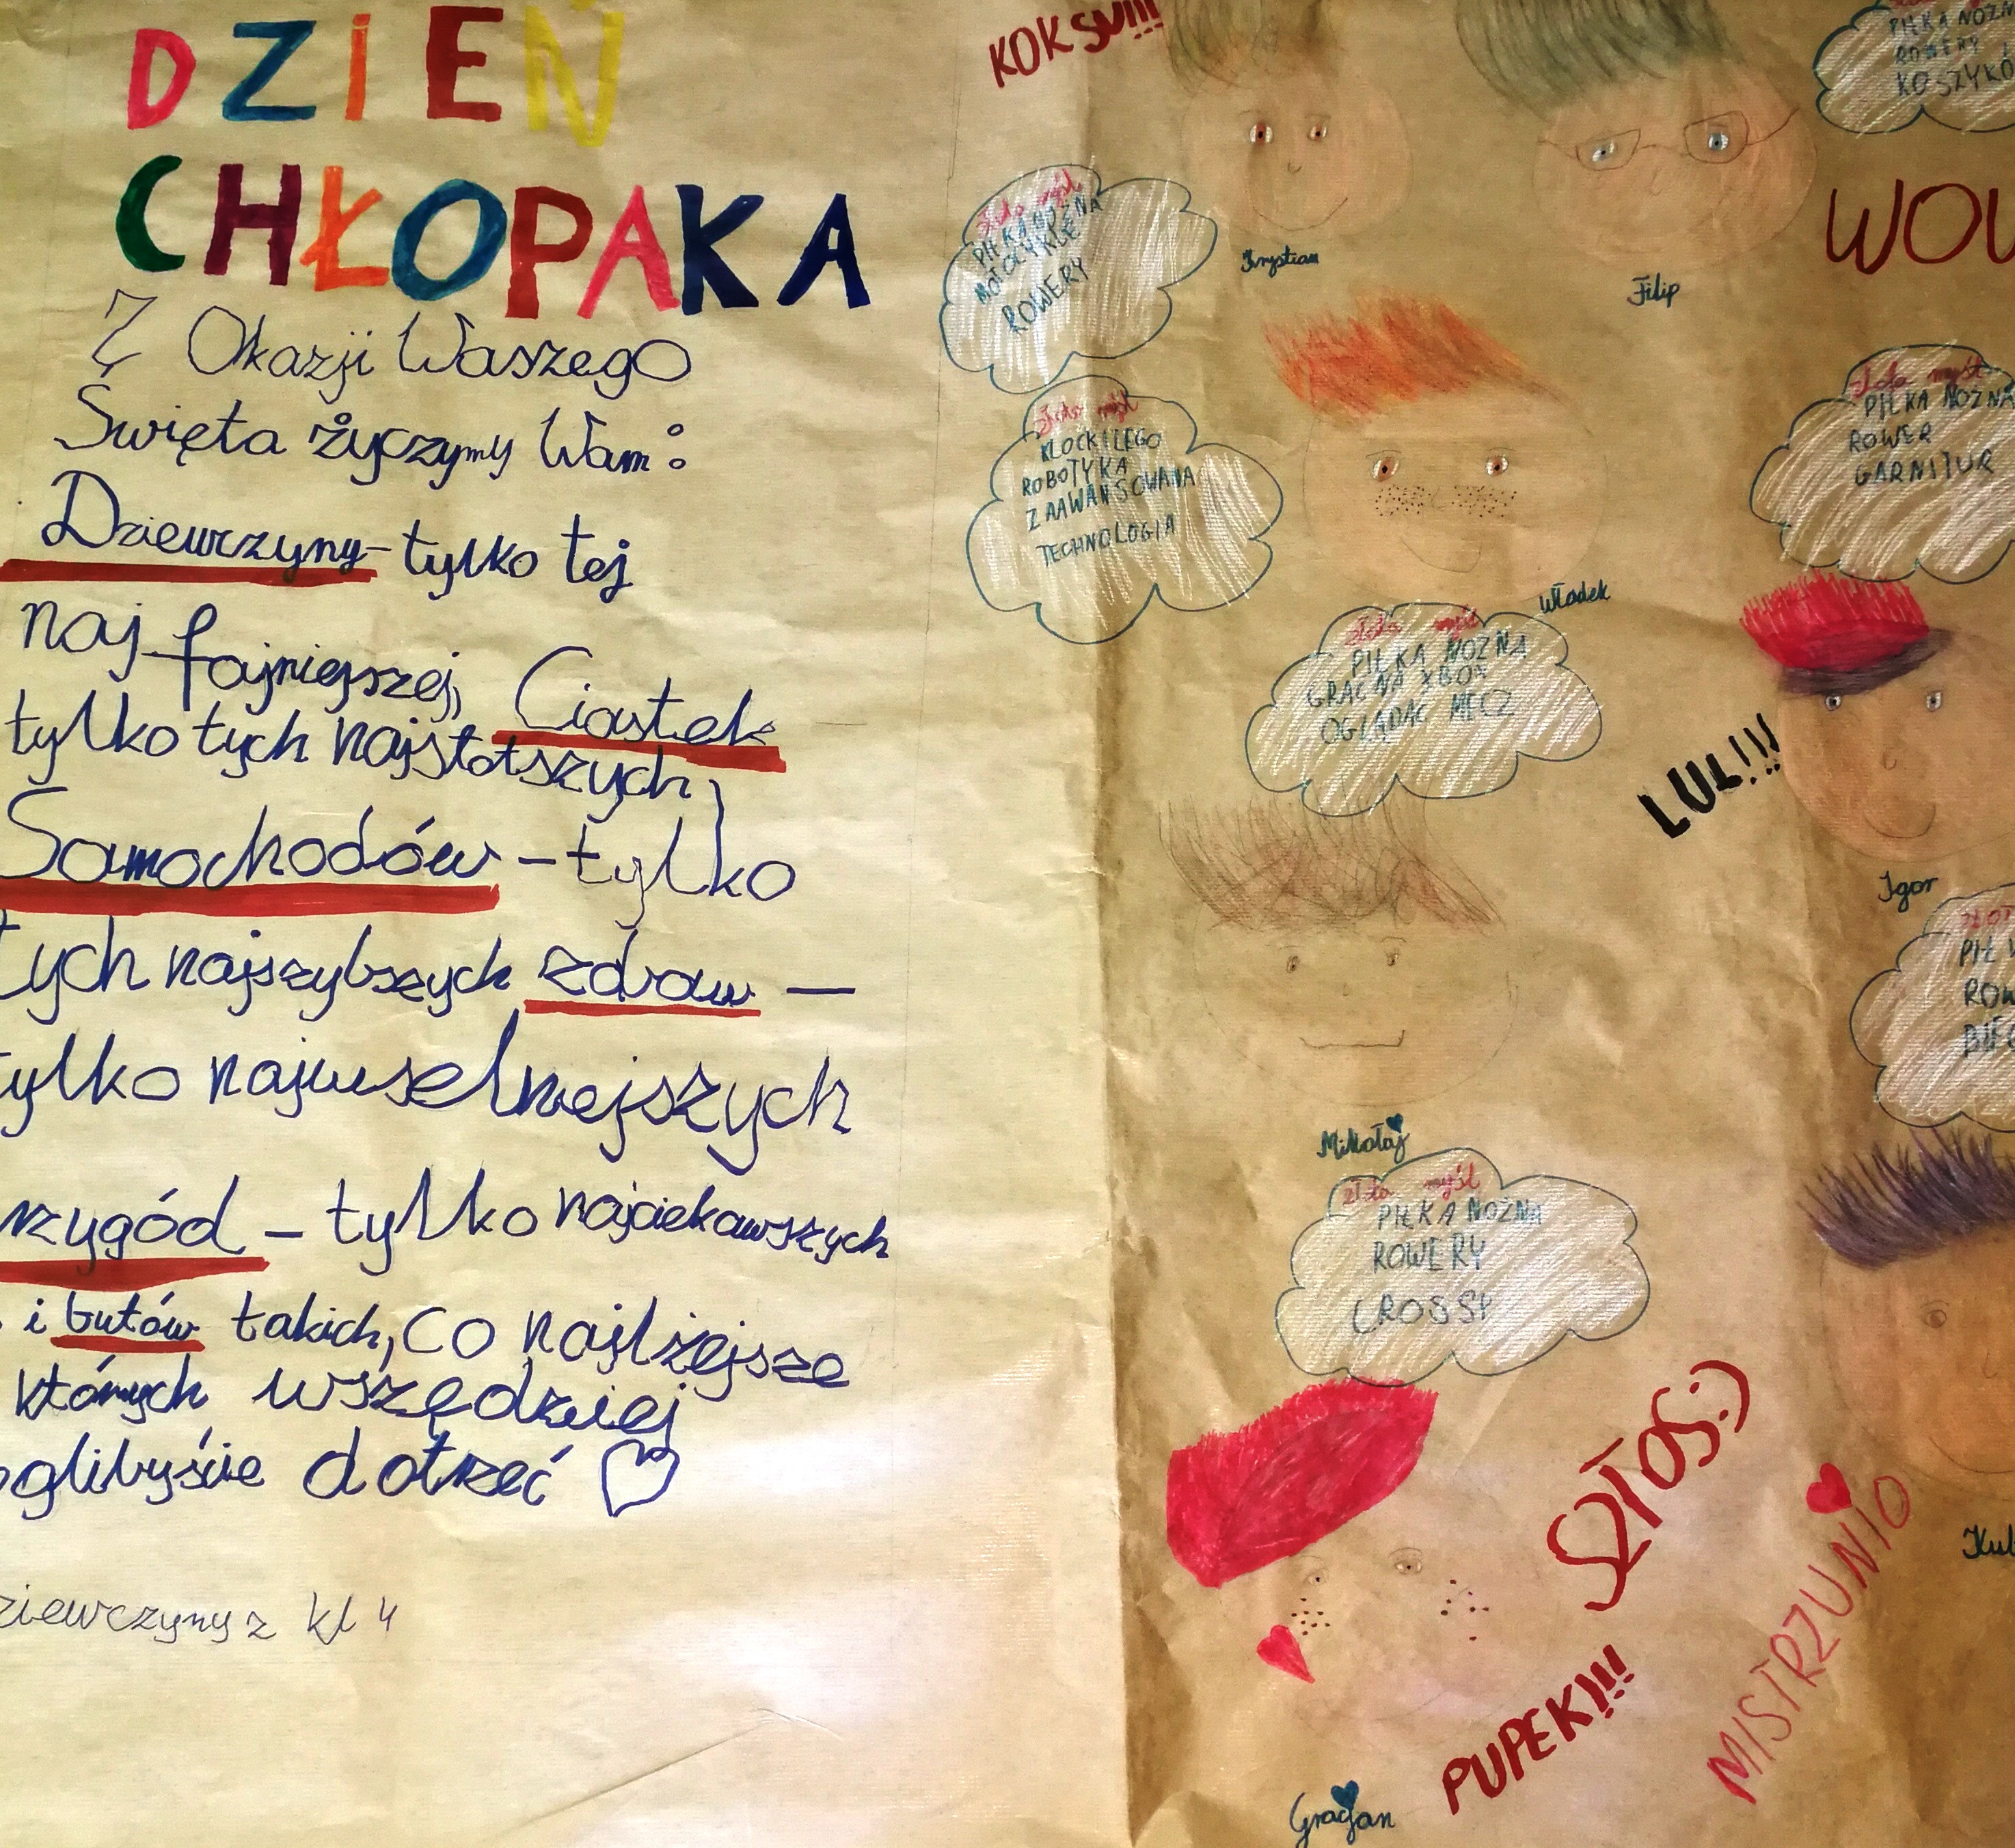 DZIEŃ
CHŁOPAKA
Z Okazji Waszego
Święta życzymy Wam:
Dziewczyny - tylko tej
naj fajniejszej, Ciastek
tylko tych najsłotszych,
Samochodów - tylko
tych najszybszych zdraw -
tylko najweselnejszych
rzygód - tylko najciekawszych
i butów takich, co najlżejsze
których wszędziej
oglibyście dotrzeć
ziewczyny z kl 4
KOKSU!!!
Krystian
Filip
złota myśl
PIŁKA NOŻNA
MOTOCYKLE
ROWERY
PIŁKA NOŻN
ROWERY
KOSZYKÓ
WOW
złota myśl
KLOCKI LEGO
ROBOTYKA
ZAAWANSOWANA
TECHNOLOGIA
Władek
złota myśl
PIŁKA NOŻNA
ROWER
GARNITUR
złota myśl
PIŁKA NOŻNA
GRAĆ NA XBOX
OGLĄDAĆ MECZ
LUL!!!
Igor
ZŁOT
PIŁK
ROW
BIEG
Mikołaj
złota myśl
PIŁKA NOŻNA
ROWERY
CROSSY
SZTOS:)
MISTRZUNIO
Kub
PUPEK!!!
Gracjan